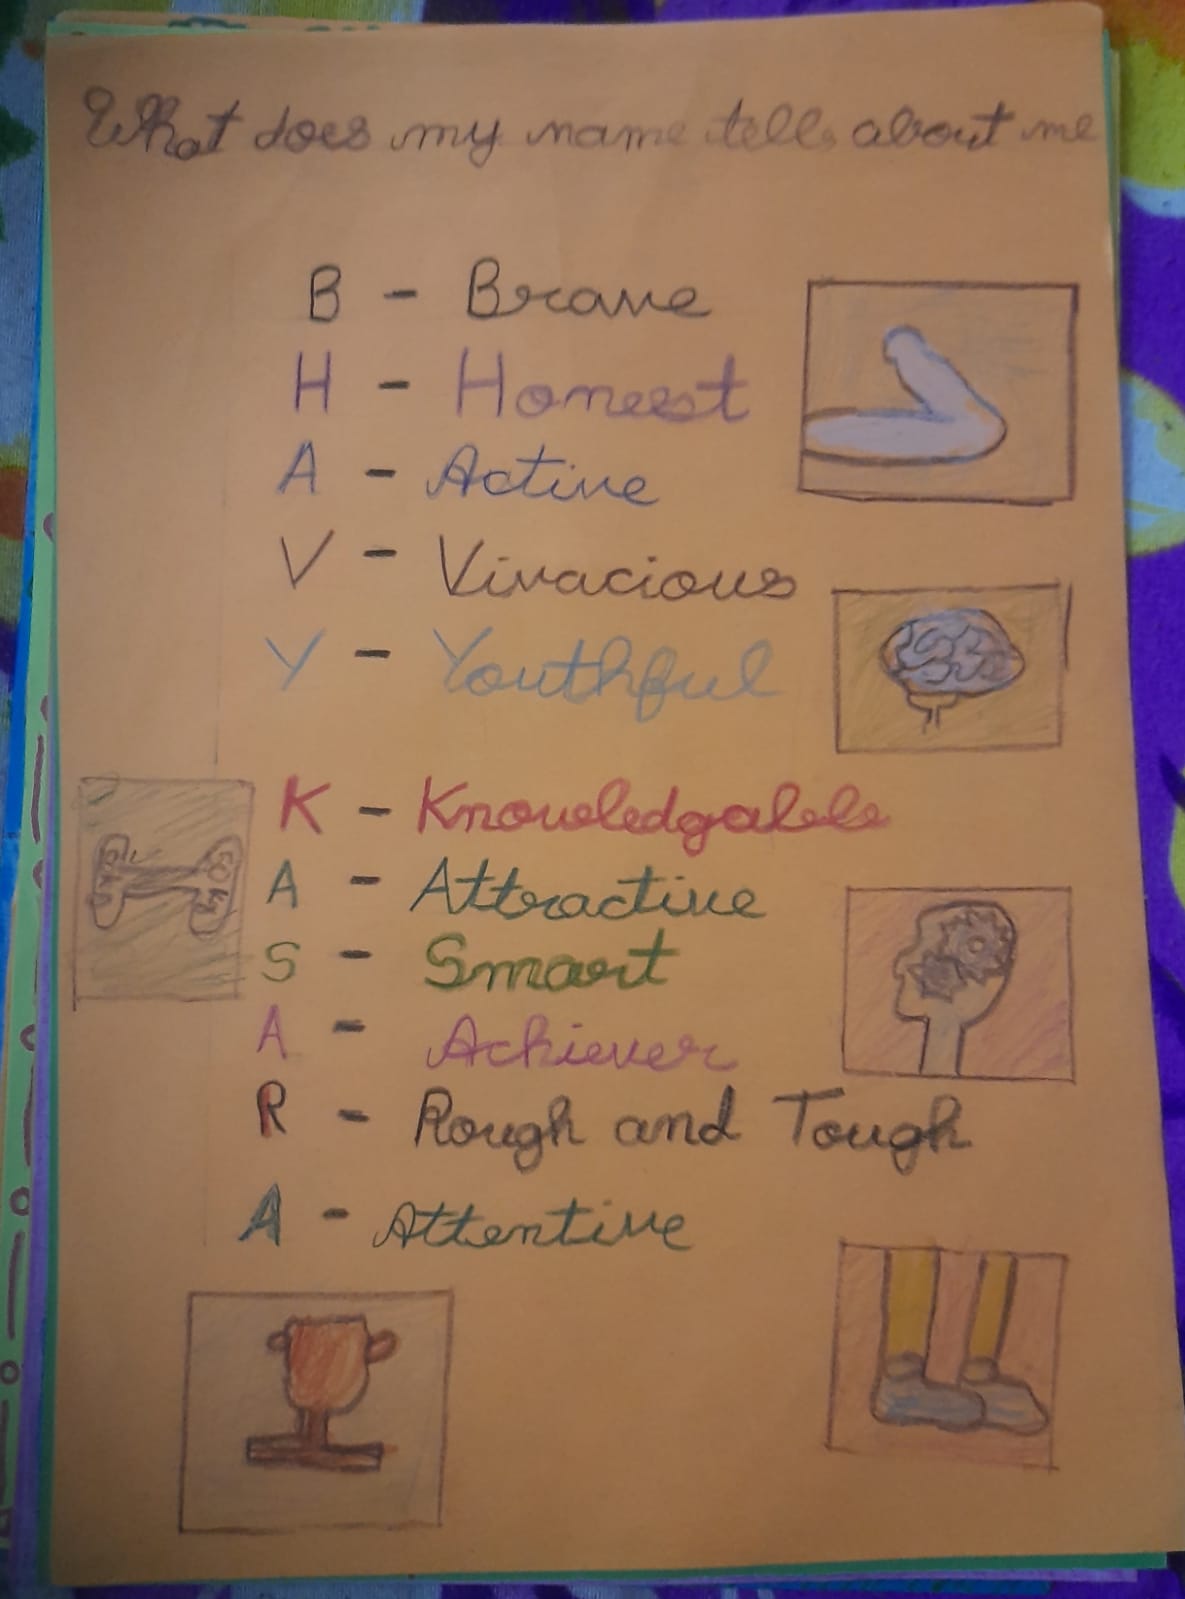 What does my name tells about me
B - Brave
H - Honest
A - Active
V - Vivacious
Y - Youthful
K - Knowledgable
A - Attractive
S - Smart
A - Achiever
R - Rough and Tough
A - Attentive
50 kg